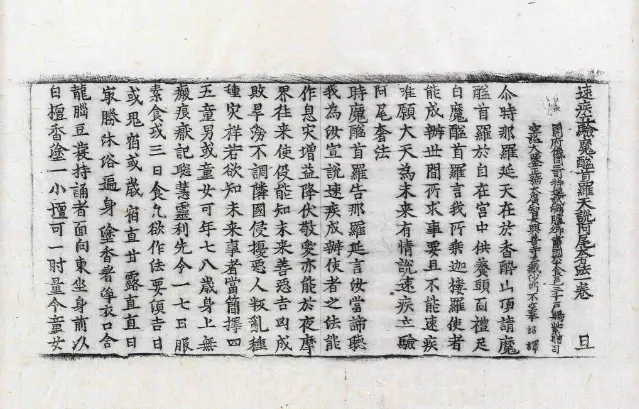 速疾立驗魔醯首羅天說阿尾奢法一卷 且
開府儀同三司特進試鴻臚卿肅國公食邑三千戶賜紫贈司
空謚大鑒正號大廣智大興善寺三藏沙門不空奉 詔譯
尒時那羅延天在於香醉山頂請魔
醯首羅於自在宮中供養頭面禮足
白魔醯首羅言我所乘迦樓羅使者
能成辦世間所求事要且不能速疾
唯願大天為未來有情說速疾立驗
阿尾奢法
時魔醯首羅告那羅延言汝當諦聽
我為汝宣說速疾成辦使者之法能
作息災增益降伏敬愛亦能於夜摩
界往來使役能知未來善惡吉凶成
敗旱澇不調隣國侵擾惡人叛亂種
種灾祥若欲知未來事者當簡擇四
五童男或童女可年七八歲身上無
瘢痕靨記聰慧靈利先令一七日服
素食或三日食凡欲作法要須吉日
或鬼宿或歲宿直甘露直直日
㝡勝沐浴遍身塗香著淨衣口含
龍腦豆蔻持誦者面向東坐身前以
白檀香塗一小壇可一肘量令童女